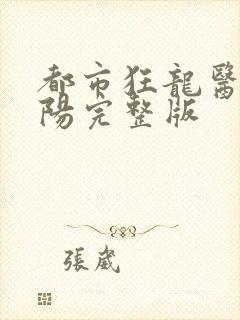 都市狂龍醫
陽完整版
張崴